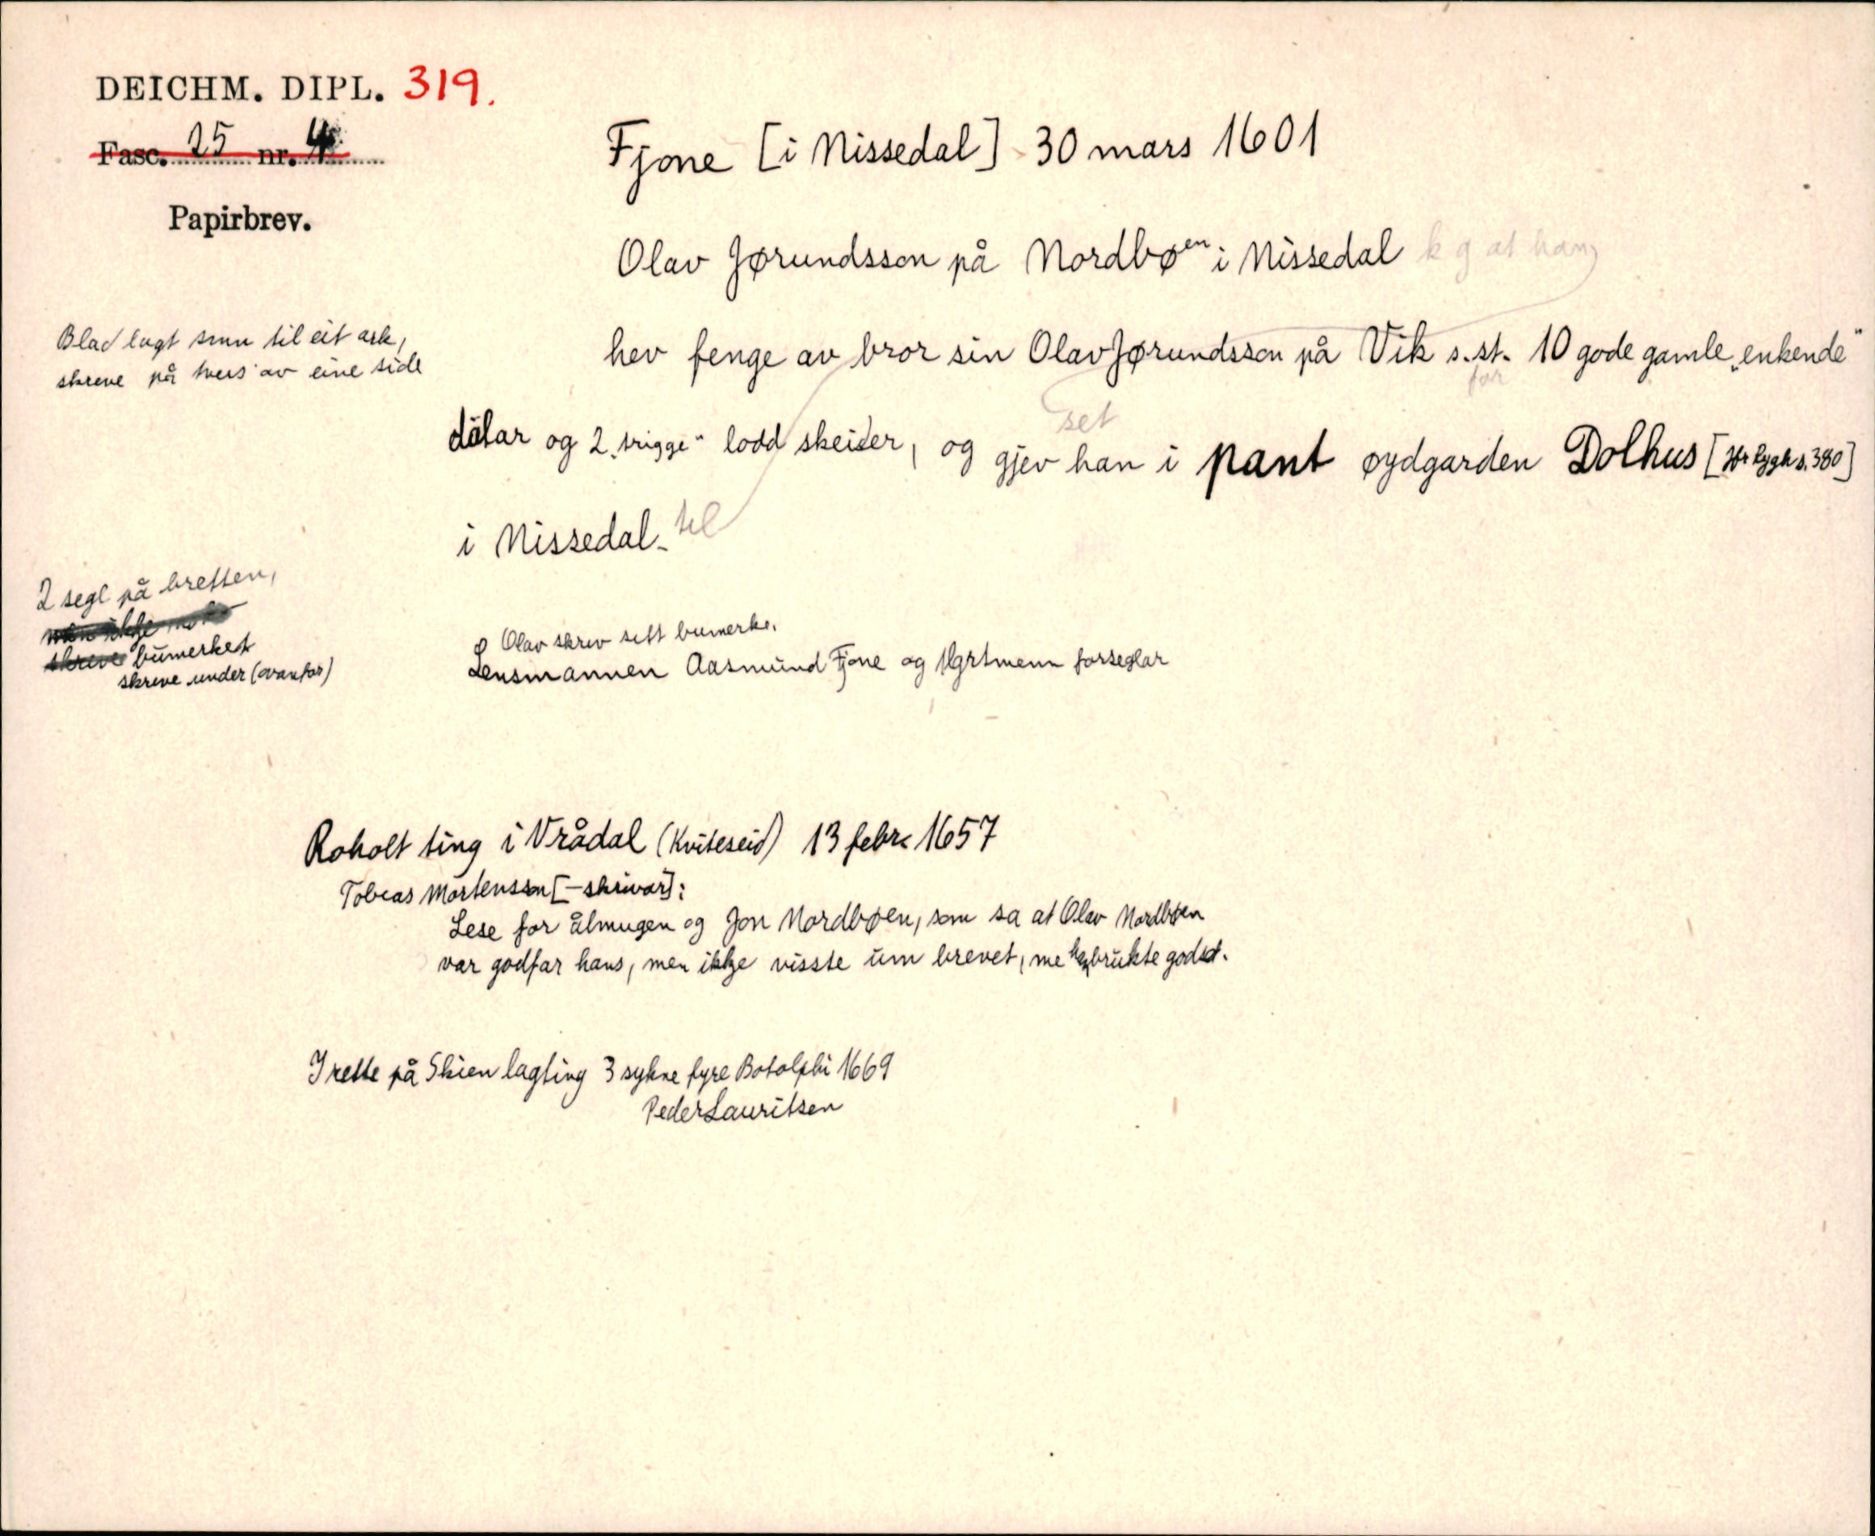 DEICHM. DIPL. 319.
Fasc. 25 nr. 4
Papirbrev.
Fjone [i Nissedal] 30 mars 1601
Olav Jørundsson på Nordbøen i Nissedal k g at han
Blad lagt smn til eit ark,
skreve på tvers av eine side
hev fenge av bror sin Olav Jørundsson på Vik s. st. 10 gode gamle „enkende"
for
dålar og 2 „trigge" lodd skeider, og gjev han i pant øydgarden Dolhus [Rygh s. 380]
set
i Nissedal. til
2 segl på bretten,
skreve bumerket
skreve under (ovanfor)
Olav skrev sitt bumerke.
Lensmannen Aasmund Fjone og lagrtmenn forseglar
Roholt ting i Vrådal (Kviteseid) 13 febr. 1657
Tobias Mortensson [– skrivar]:
Lese for ålmugen og Jon Nordbøen, som sa at Olav Nordbøen
var godfar hans, men ikkje visste um brevet, me brukte godset.
I rette på Skien lagting 3 sykne fyre Botolphi 1669
Peder Lauritsen